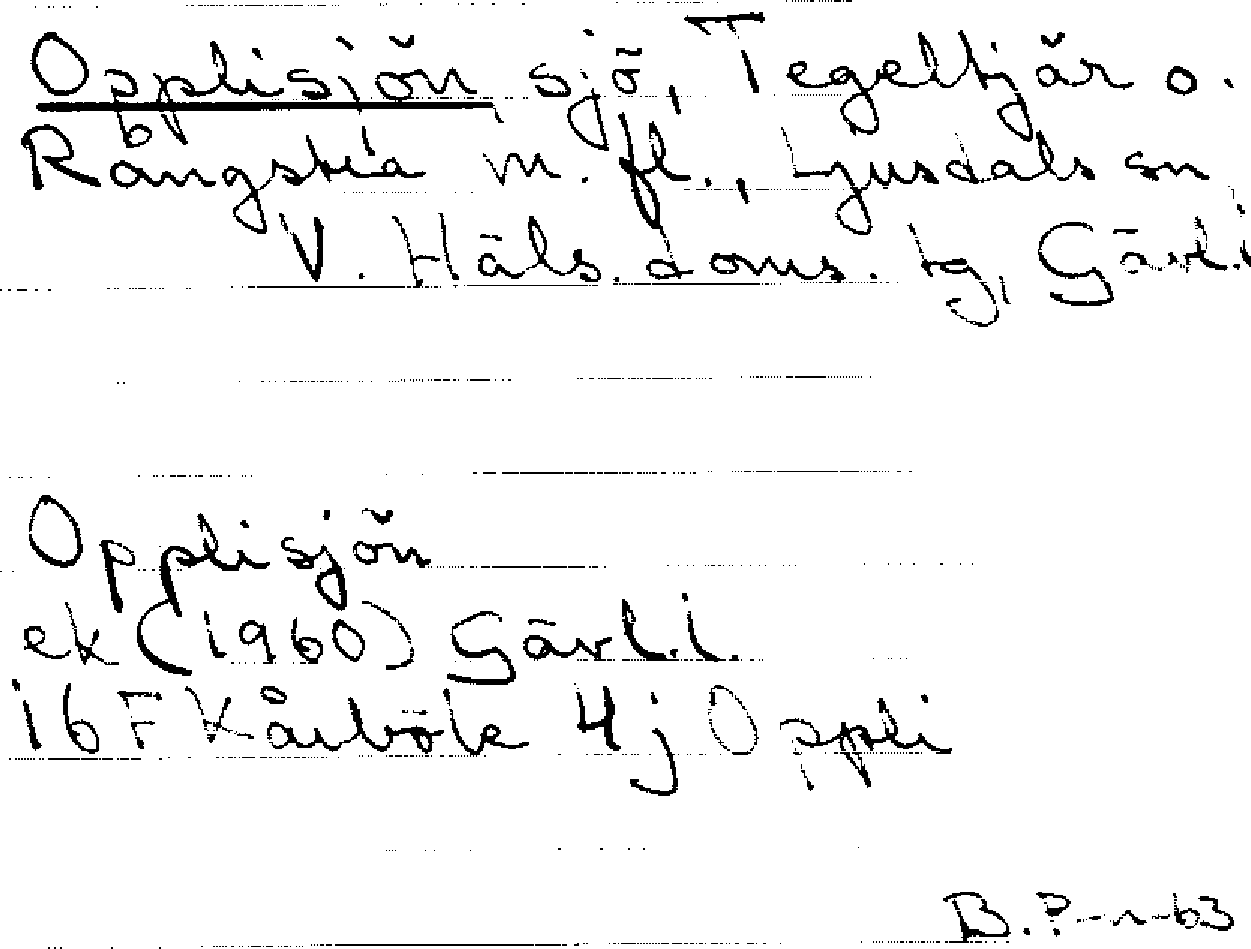 Opplisjön sjö, Tegeltjär o.
Rångstia m. fl., Ljusdals sn
V. Häls. doms. tg, Gävl.
Opplisjön
ek (1960) Gävl.l.
16F Kårböle 4j Oppli
B.